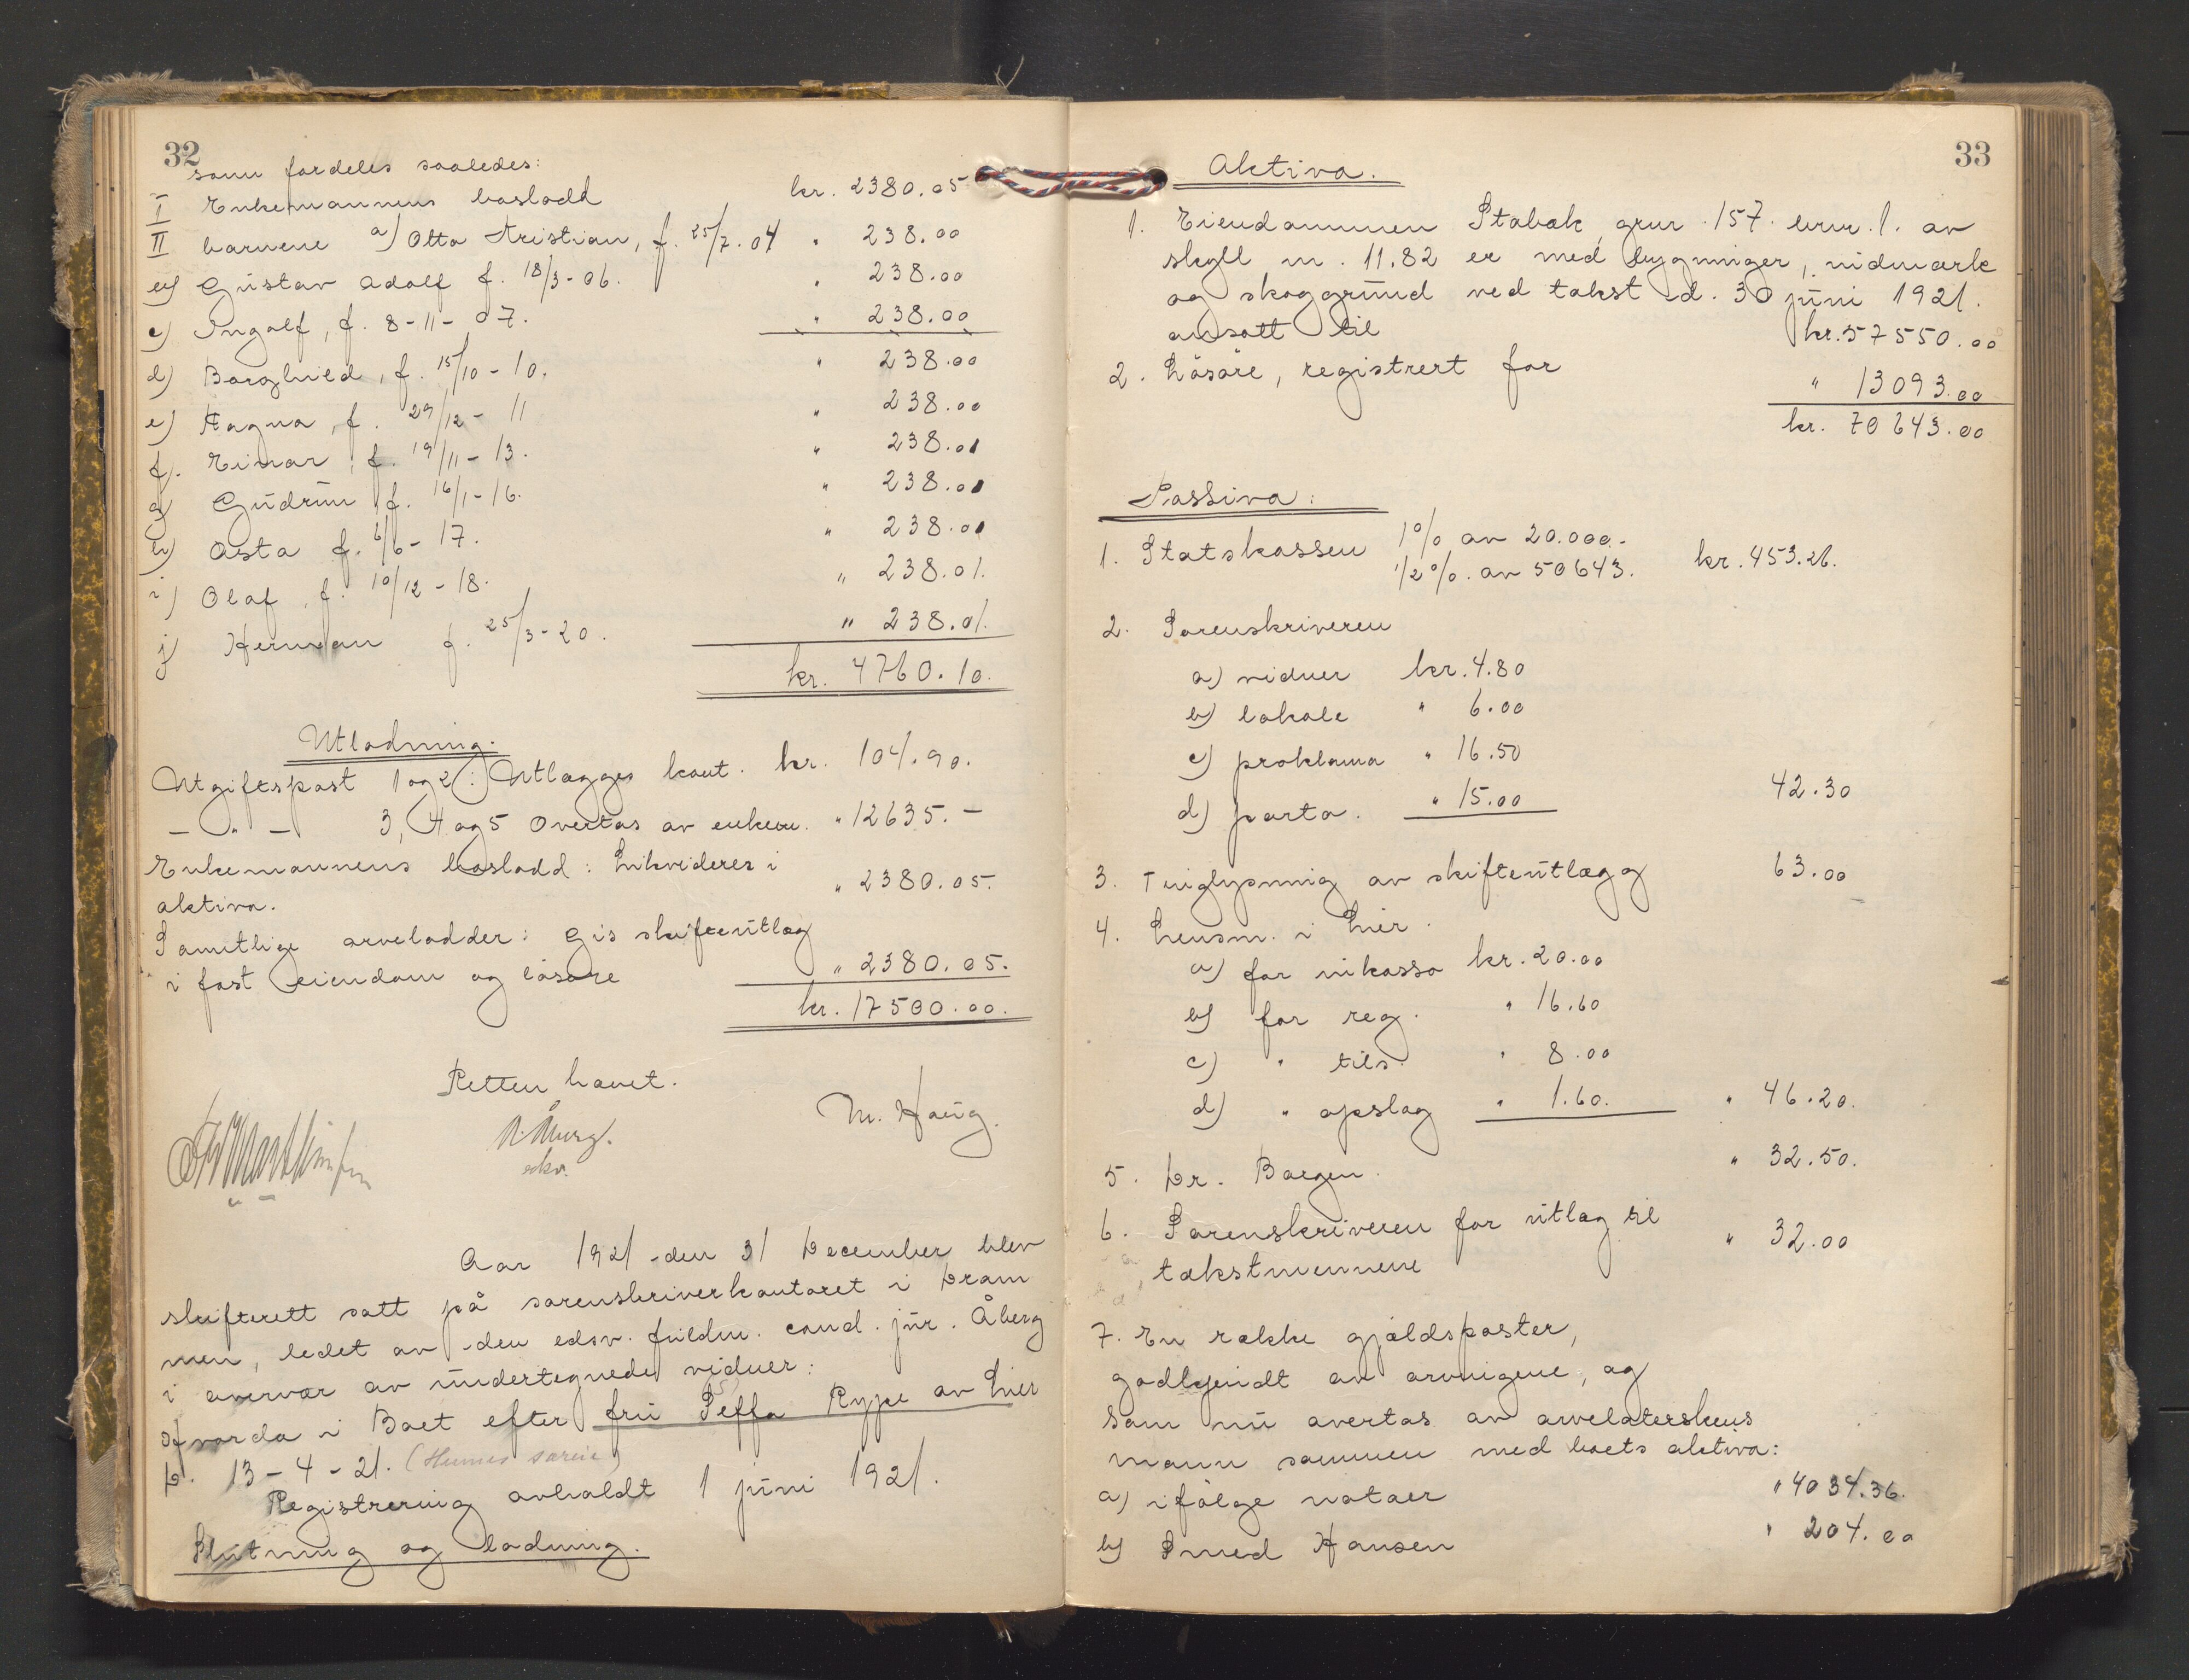 32
som fordeles saaledes:
I Enkemannens boslodd kr. 2380.05
II barnene a) Otto Kristian, f. 25/7.04 " 238.00
b) Gustav Adolf f. 18/3-06. " 238.00
c) Ingolf, f. 8-11-07. " 238.00
d) Borghild, f. 15/10-10. " 238.00
e) Magna, f. 29/12-11 " 238.00
f). Einar f. 19/11-13. " 238.01
g) Gudrun f. 16/1-16. " 238.01
h) Asta f. 6/6-17. " 238.01
i) Olaf, f. 10/12-18. " 238.01.
j) Herman f. 25/3-20. " 238.01.
kr. 4760.10.
Utlodning.
Utgiftspost 1 og 2: Utlægges kont. kr. 104.90.
— " — 3, 4 og 5 Overtas av enkem. " 12635.—
Enkemannens boslodd: Likvideres i
aktiva. " 2380.05.
Samtlige arvelodder: Gis skifteutlæg
i fast eiendom og løsøre " 2380.05.
kr. 17500.00.
Retten hævet.
R. Åberg.
edsv.
M. Haug.
Aar 1921 den 31 December blev
skifterett satt på sorenskriverkontoret i Dram
men, ledet av den edsv. fuldm. cand. jur. Åberg
i overvær av undertegnede vidner:
Hvorda i Boet efter fru Seffa Rype av Lier
D. 13-4-21.
Registrering avholdt 1 juni 1921.
Slutning og lodning.
33
Aktiva.
1. Eiendommen Stabæk, gnr. 157. bnr. 1. av
skyld m. 11.82 er med bygninger, utmark
og skoggrund ved takst d. 30 juni 1921.
ansatt til kr. 57550.00
2. Løsøre, registrert for " 13093.00
kr. 70643.00
Passiva:
1. Statskassen 1% av 20.000.-
1/2%. av 50643. kr. 453.26.
2. Sorenskriveren
a) vidner kr. 4.80
b) lokale " 6.00
c) proklama " 16.50
d) porto. " 15.00 42.30
3. Tinglysning av skifteutlægg 63.00
4. Lensm. i Lier.
a) for inkasso kr. 20.00
b) for reg. " 16.60
c) " tils. " 8.00
d) " opslag " 1.60. " 46.20.
5. Dr. Borgen. " 32.50.
6. Sorenskriveren for utlæg til
takstmennene " 32.00
7. En række gjældsposter,
godkjendt av arvingene, og
som nu overtas av arvelaterskens
mann sammen med boets aktiva:
a) ifølge notaer " 4034.36.
b) Smed Hansen " 204.00